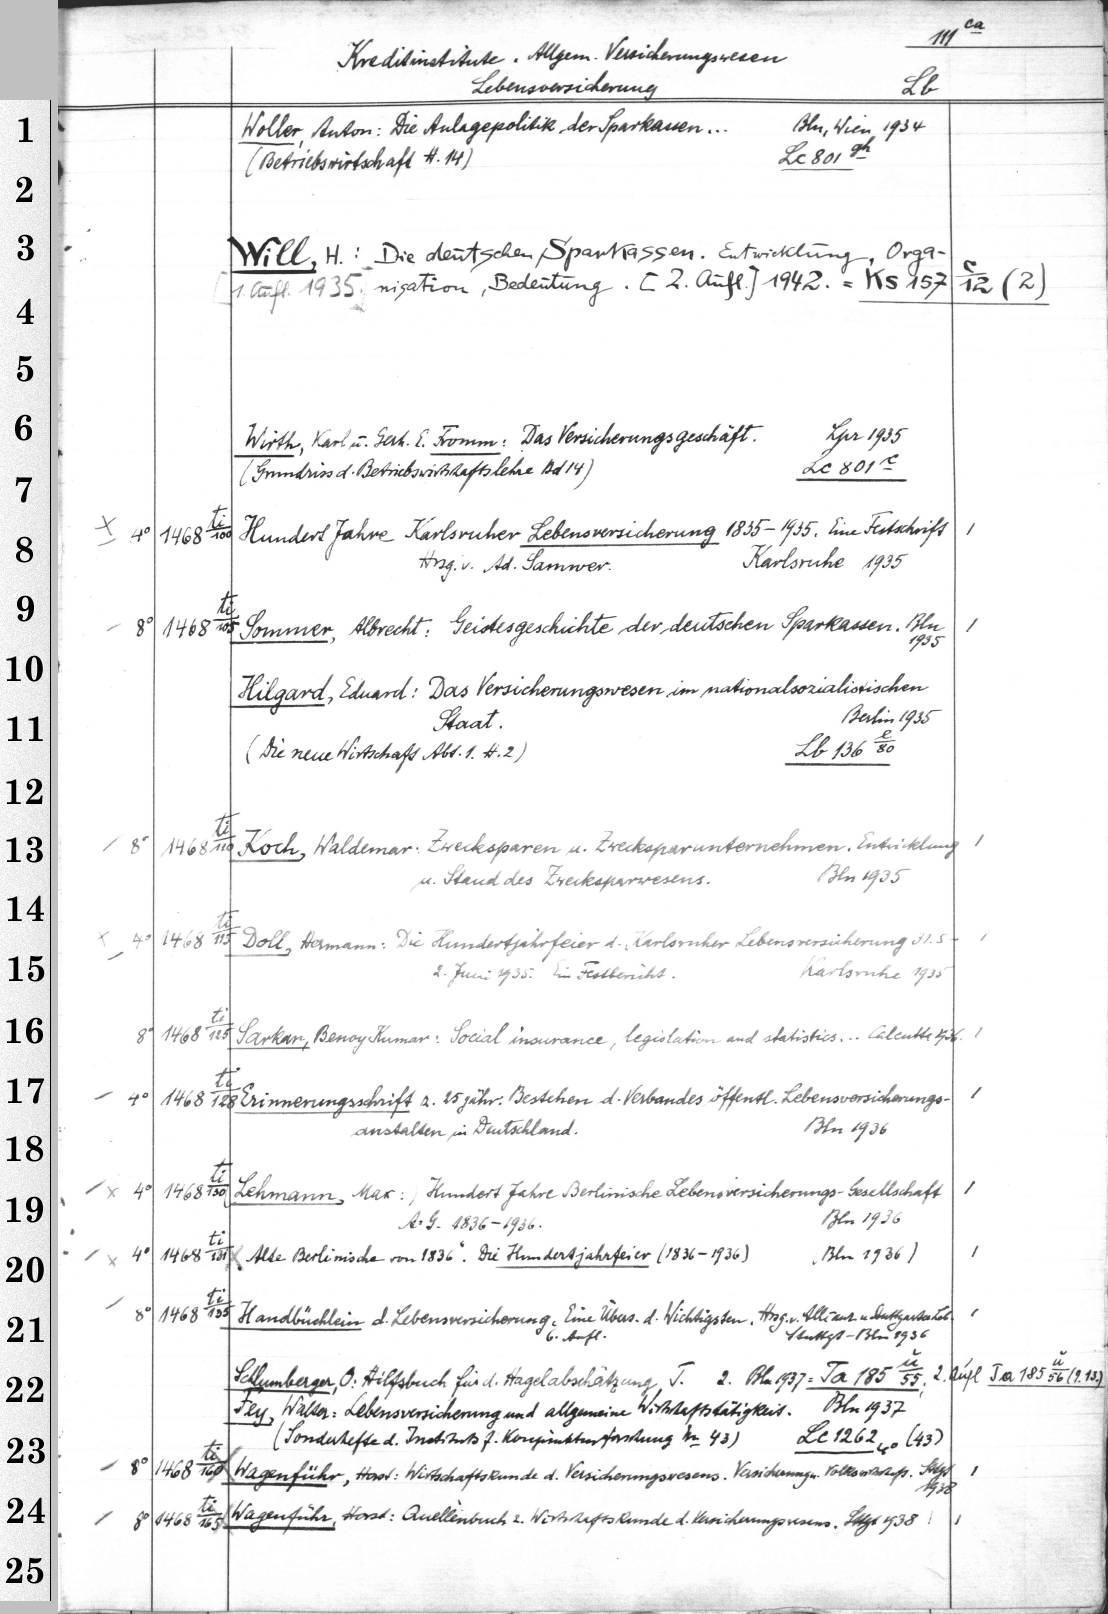 111 ca
Kreditinstitute. Allgem. Versicherungswesen
Lebensversicherung Lb
1 Woller, Anton: Die Anlagepolitik der Sparkassen... Bln, Wien 1934
(Betriebswirtschaft H. 14) Lc 801 gh
2
3 Will, H.: Die deutschen Sparkassen. Entwicklung, Orga-
1. Aufl. 1935. nisation, Bedeutung. [2. Aufl.] 1942. = Ks 157 c/12 (2)
4
5
6 Wirth, Karl u. Gerh. E. Fromm: Das Versicherungsgeschäft. Lpz 1935
(Grundriss d. Betriebswirtschaftslehre Bd 14) Lc 801 c
7
8 x 4° 1468 ti/100 Hundert Jahre Karlsruher Lebensversicherung 1835-1935. Eine Festschrift 1
Hrsg. v. Ad. Samwer. Karlsruhe 1935
9 8° 1468 ti/105 Sommer, Albrecht: Geistesgeschichte der deutschen Sparkassen. Bln 1
1935
10 Hilgard, Eduard: Das Versicherungswesen im nationalsozialistischen
11 Staat. Berlin 1935
(Die neue Wirtschaft Abt. 1. H. 2) Lb 136 e/80
12
13 / 8° 1468 ti/110 Koch, Waldemar: Zwecksparen u. Zwecksparunternehmen. Entwicklung 1
u. Stand des Zwecksparwesens. Bln 1935
14 x 4° 1468 ti/115 Doll, Hermann: Die Hundertjahrfeier d. Karlsruher Lebensversicherung 31.5- 1
15 2. Juni 1935. Ein Festbericht. Karlsruhe 1935
16 8° 1468 ti/125 Sarkar, Benoy Kumar: Social insurance, legislation and statistics... Calcutta 1936. 1
17 4° 1468 ti/128 Erinnerungsschrift z. 25jähr. Bestehen d. Verbandes öffentl. Lebensversicherungs- 1
anstalten in Deutschland. Bln 1936
18
19 / x 4° 1468 ti/130 Lehmann, Max: Hundert Jahre Berlinische Lebensversicherungs-Gesellschaft 1
A.G. 1836-1936. Bln 1936
20 / x 4° 1468 ti/131 Alte Berlinische von 1836". Die Hundertjahrfeier (1836-1936) (Bln 1936) 1
21 / 8° 1468 ti/135 Handbüchlein d. Lebensversicherung. Eine Übers. d. Wichtigsten. Hrsg. v. Allianz u. Stuttgarter Leb. 1
6. Aufl. Stuttgt-Bln 1936
22 Schlumberger, O: Hilfsbuch für d. Hagelabschätzung T. 2. Bln 1937 = Ta 185 ü/55, 2. Aufl Ta 185 ü/56
Fey, Walter: Lebensversicherung und allgemeine Wirtschaftstätigkeit. Bln 1937
23 (Sonderhefte d. Instituts f. Konjunkturforschung 43) Lc 1262 40 (43)
8° 1468 ti/160 Wagenführ, Horst: Wirtschaftskunde d. Versicherungswesens. Versicherung u. Volkswirtschaft. Stuttgt 1
1938
24 / 8° 1468 ti/165 Wagenführ, Horst: Quellenbuch z. Wirtschaftskunde d. Versicherungswesens. Stuttgt 1938 1
25